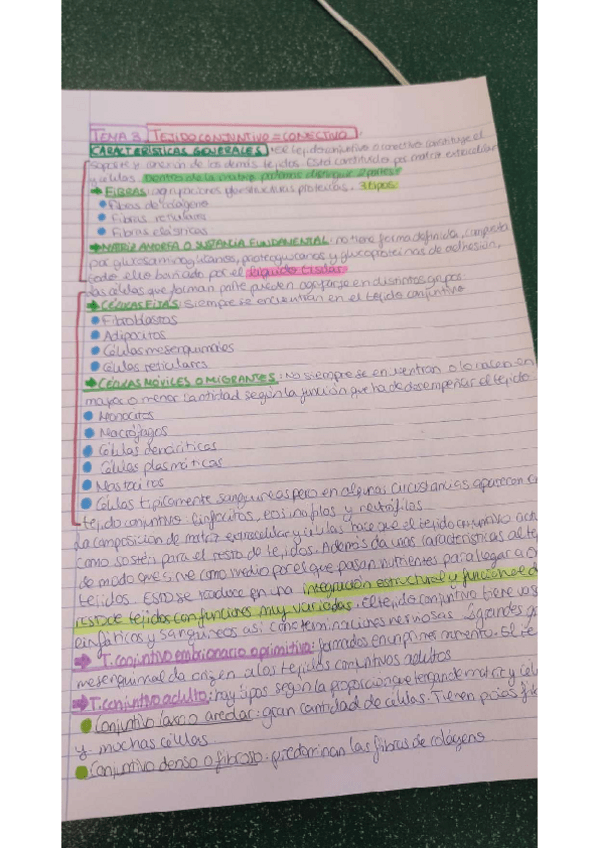 TEMA 3. TEJIDO CONJUNTIVO = CONECTIVO.
CARACTERÍSTICAS GENERALES: el tejido conjuntivo o conectivo constituye el
soporte y conexión de los demás tejidos. Está constituido por matriz extracelular
y células. Dentro de la matriz podemos distinguir 2 partes:
→ FIBRAS: agrupaciones glucoestructuras proteicas. 3 tipos:
Fibras de colágeno
Fibras reticulares
Fibras elásticas
→ MATRIZ AMORFA O SUSTANCIA FUNDAMENTAL: no tiene forma definida, compuesta
por glucosaminoglucanos, proteoglucanos y glucoproteínas de adhesión,
todo ello bañado por el líquido tisular
Las células que forman parte pueden agruparse en distintos grupos:
→ CÉLULAS FIJAS: siempre se encuentran en el tejido conjuntivo
Fibroblastos
Adipocitos
Células mesenquimales
Células reticulares
→ CÉLULAS MÓVILES O MIGRANTES: No siempre se encuentran o lo hacen en
mayor o menor cantidad según la función que ha de desempeñar el tejido
Monocitos
Macrófagos
Células dendríticas
Células plasmáticas
Mastocitos
Células típicamente sanguíneas pero en algunas circustancias aparecen
tejido conjuntivo: linfocitos, eosinófilos y neutrófilos
La composición de matriz extracelular y células hace que el tejido conjuntivo
como sostén para el resto de tejidos. Además da unas características al
de modo que sirve como medio por el que pasan nutrientes para llegar a
tejidos. Esto se traduce en una integración estructural y funcional
resto de tejidos con funciones muy variadas. El tejido conjuntivo tiene
linfáticos y sanguíneos así como terminaciones nerviosas. 2 grandes
→ T. conjuntivo embrionario o primitivo: formados en un primer momento. El
mesenquimal da origen a los tejidos conjuntivos adultos
→ T. conjuntivo adulto: hay tipos según la proporción que tengan de matriz y
Conjuntivo laxo o areolar: gran cantidad de células. Tienen pocas
y muchas células
Conjuntivo denso o fibroso: predominan las fibras de colágeno